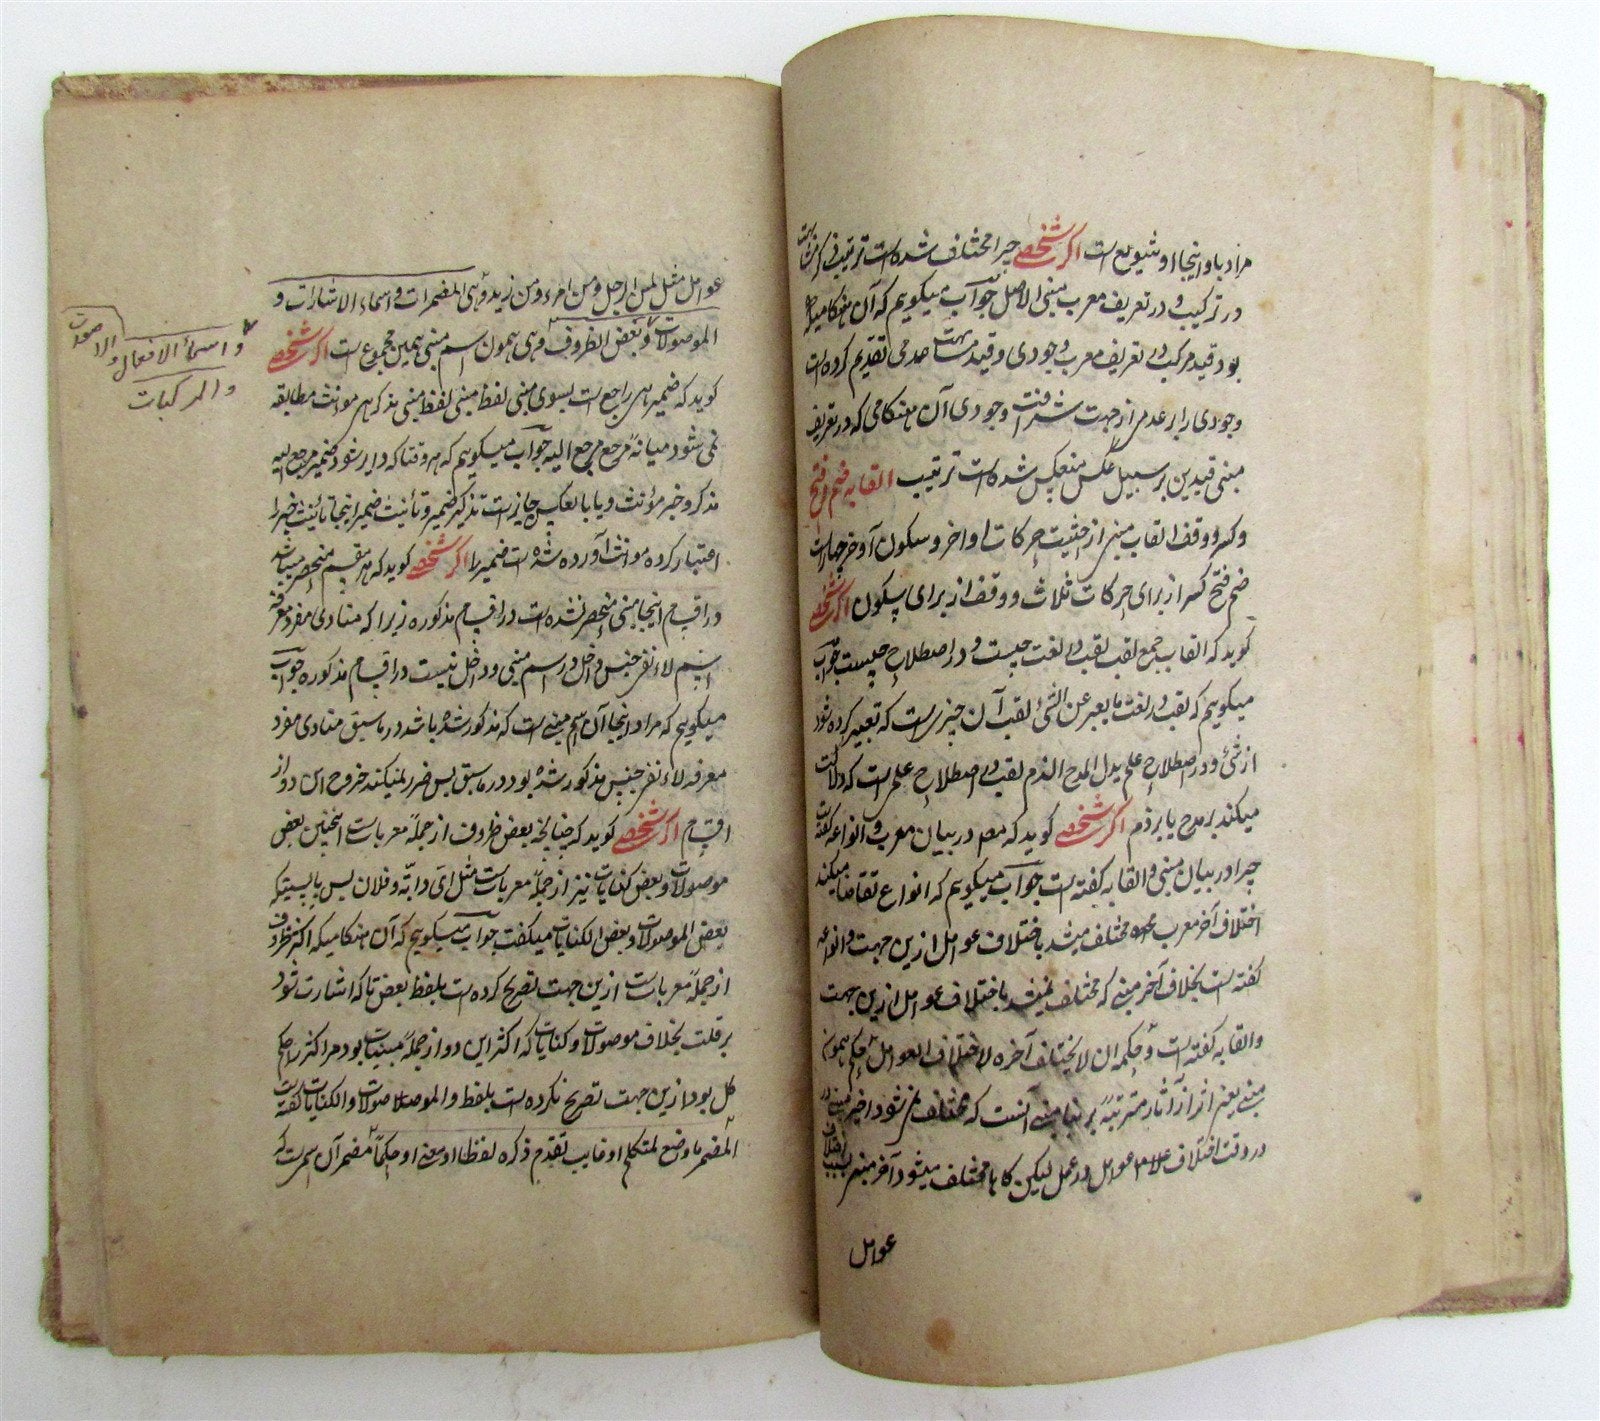 مراد با و اینجا او شیوع است اکر شخصی چرا مختلف شده است ترتیب
در ترکیب و در تعریف معرب مبنی الاصل جواب میکویم که آن هنکامیکه
بود قید مرکب در تعریف معرب وجودی و قید مشابهت عدمی تقدیم کرده است
وجودی را بر عدمی از جهت شرافت وجودی آن هنکامی که در تعریف
مبنی قیدین بر سبیل عکس منعکس شده است ترتیب القابه ضم و فتح
و کسر و وقف القاب مبنی از حیثیت حرکات اواخر و سکون آوخر چهار است
ضم فتح کسر از برای حرکات ثلاث و وقف از برای سکون اکر شخصی
کوید که القاب جمع لقب لقب در لغت چیست و در اصطلاح چیست جواب
میکویم که لقب در لغت ما یعبر عن الشئ لقب آن چیزی است که تعبیر کرده شود
از شئ و در اصطلاح علم یدل المدح الذم لقب در اصطلاح علمی است که دلالت
میکند بر مدح یا بر ذم اکر شخصی کوید که مصم در بیان معرب و انواعه کفته است
چرا در بیان مبنی و القابه کفته است جواب میکویم که انواع تقاضا میکند
اختلاف آخر معرب مختلف میشد باختلاف عوامل ازین جهت و انواعه
کفته است بخلاف آخر مبنی که مختلف نمیشد باختلاف عوامل ازین جهت
و القابه کفته است و حکمه ان لا یختلف آخره لاختلاف العوامل حکم
مبنی یعنی اثر از آثار مترتبة بر بناء مبنی آنست که مختلف نمی شود آخر مبنی
در وقت اختلاف عوامل در عمل لیکن کاه مختلف میشود آخر مبنی بسبب اختلاف
عوامل
عوامل مثل لمن الرجل و من امرء و من زید و هی المضمرات و اسماء الاشارات و
الموصولات و بعض الظروف و هی همون اسم مبنی همین مجموع است اکر شخصی
و اسماء الافعال و الاصوات
و المرکبات
کوید که ضمیر هی راجع است بسوی مبنی لفظ مبنی لفظ مبنی مذکر هی مؤنث مطابقه
نمی شود میانه مرجع الیه جواب میکویم که هر وقتا که دایر شود ضمیر مرجع الیه
مذکر و خبر مؤنث و یا بالعکس جایز است تذکیر ضمیر و تأنیث ضمیر اینجا تأنیث خبر را
اعتبار کرده مؤنث آورده شده است ضمیر را اکر شخصی کوید که هر مقسم منحصر میباشد
در اقسام اینجا مبنی منحصر نشده است در اقسام مذکوره زیرا که منادی مفرد معرفه
اسم لاء نفی جنس داخل در اسم مبنی و داخل نیست در اقسام مذکوره جواب
میکویم که مراد اینجا آن اسم مبنی است که مذکور نشده باشد در ما سبق منادی مفرد
معرفه لاء نفی جنس مذکور شده بود در ما سبق پس ضرر نمیکند خروج این دو از
اقسام اکر شخصی کوید که چنانچه بعض ظروف از جمله معربات است انچنین بعض
موصولات و بعض کنایات نیز از جمله معربات است مثل ای و ابة و فلان پس بایستیکه
بعض الموصولات و بعض الکنایات میکفت جواب میکویم که آن هنکامیکه اکثر ظروف
از جمله معربات است ازین جهت تصریح کرده است بلفظ بعض تا که اشارت شود
بر قلت بخلاف موصولات و کنایات که اکثر این دو از جمله مبنیات بود مر اکثر را حکم
کل بود ازین جهت تصریح نکرده است بلفظ و الموصولات و الکنایات کفته است
المضمر ما وضع لمتکلم او غایب تقدم ذکره لفظا او معنی او حکما مضمر آن اسمی است که